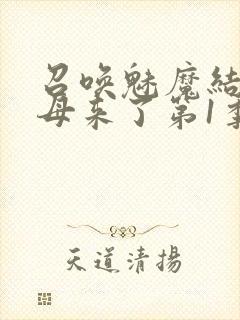 召唤魅魔结
母来了第1季
天道清揚